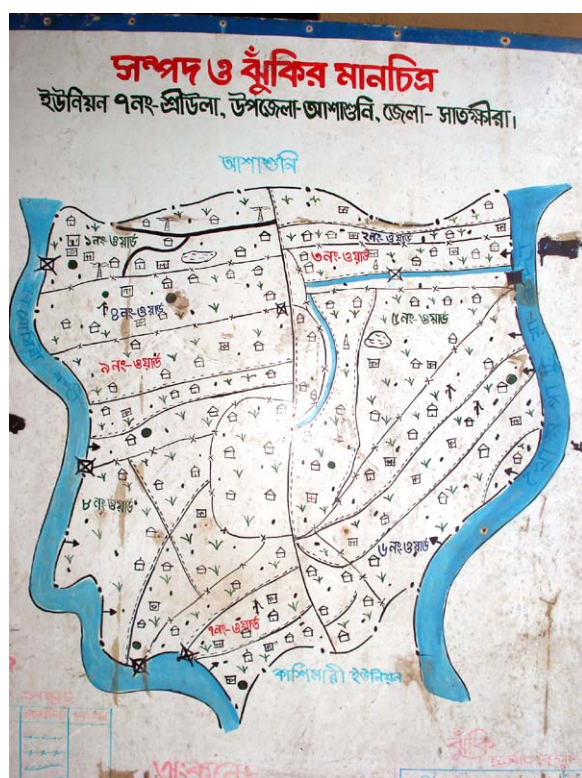 সম্পদ ও ঝুঁকির মানচিত্র
ইউনিয়ন ৭নং-শ্রীউলা, উপজেলা-আশাশুনি, জেলা- সাতক্ষীরা।
আশাশুনি
১নং-ওয়ার্ড
২নং-ওয়ার্ড
৩নং-ওয়ার্ড
৪নং-ওয়ার্ড
৫নং-ওয়ার্ড
৯নং-ওয়ার্ড
৮নং-ওয়ার্ড
৬নং-ওয়ার্ড
৭নং-ওয়ার্ড
কাশিমারী ইউনিয়ন
ঝুঁকি